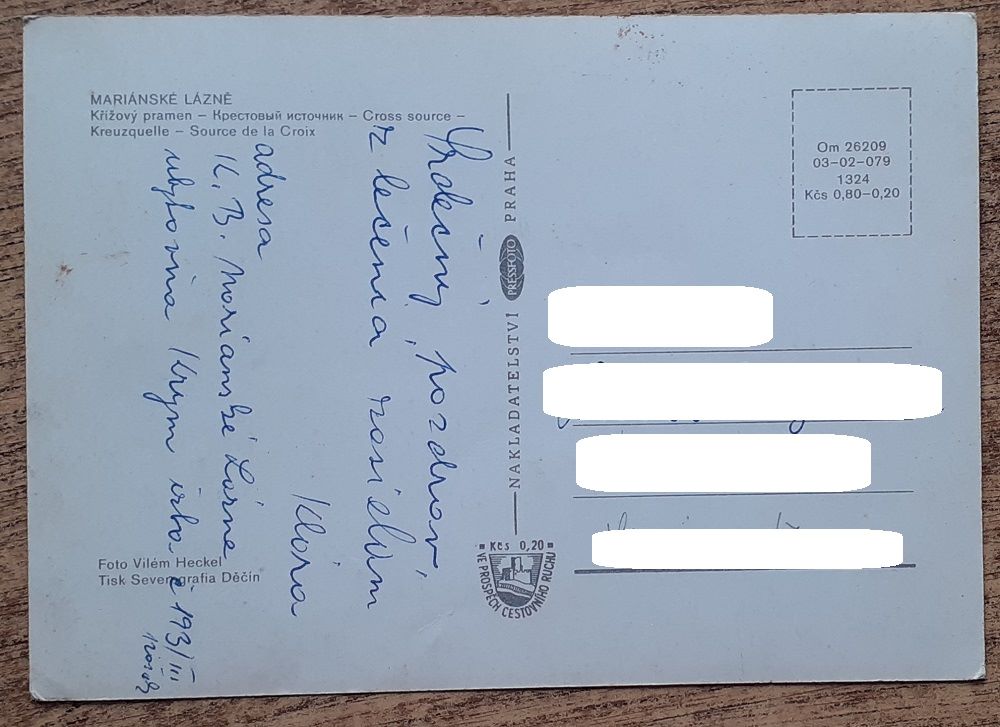 MARIÁNSKÉ LÁZNĚ
Křížový pramen – Крестовый источник – Cross source –
Kreuzquelle – Source de la Croix
Srdečný pozdrav
z lečenia zasielam
Klára
adresa
K. B. Marianské Lázne
ubytovňa Krym izba č 193/III
Foto Vilém Heckel
Tisk Severografia Děčín
NAKLADATELSTVÍ PRESSFOTO PRAHA
Kčs 0,20
VE PROSPĚCH CESTOVNÍHO RUCHU
Om 26209
03-02-079
1324
Kčs 0,80-0,20